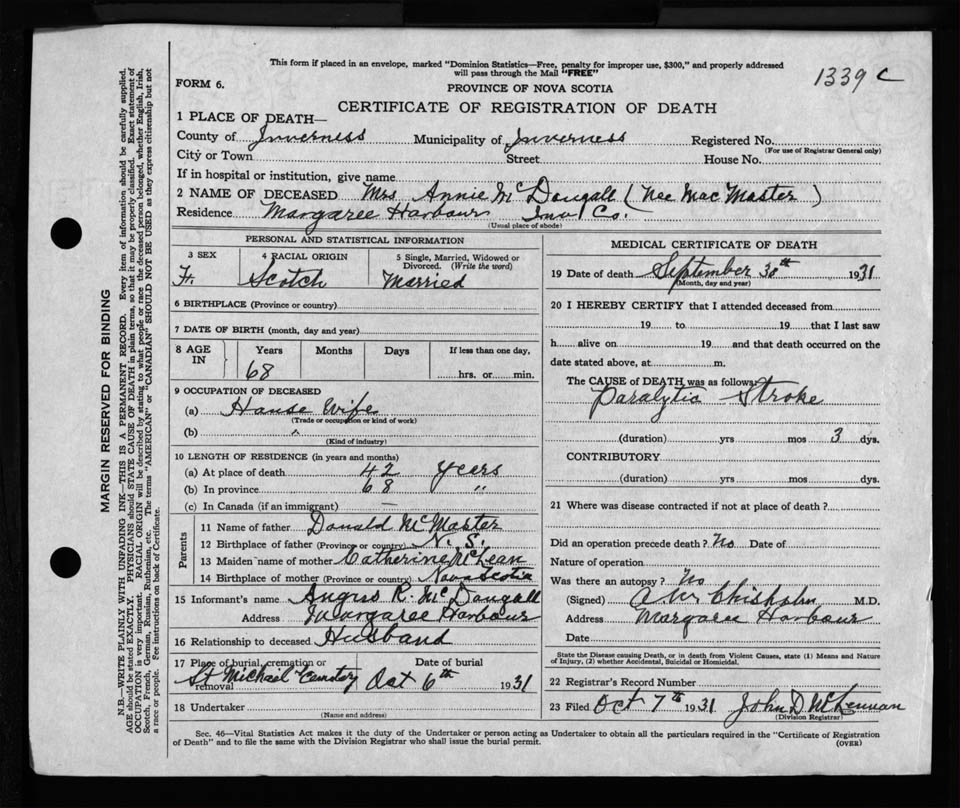 This form if placed in an envelope, marked "Dominion Statistics—Free, penalty for improper use, $300," and properly addressed
will pass through the Mail "FREE"
1339 C
FORM 6.
PROVINCE OF NOVA SCOTIA
CERTIFICATE OF REGISTRATION OF DEATH
1 PLACE OF DEATH—
County of Inverness Municipality of Inverness Registered No.
(For use of Registrar General only)
City or Town Street House No.
If in hospital or institution, give name
2 NAME OF DECEASED Mrs. Annie McDougall (Nee MacMaster)
Residence Margaree Harbour Inv. Co.
(Usual place of abode)
PERSONAL AND STATISTICAL INFORMATION
3 SEX 4 RACIAL ORIGIN 5 Single, Married, Widowed or
Divorced. (Write the word)
F. Scotch Married
6 BIRTHPLACE (Province or country)
7 DATE OF BIRTH (month, day and year)
8 AGE IN Years Months Days If less than one day,
68 hrs. or min.
9 OCCUPATION OF DECEASED
(a) House Wife
(Trade or occupation or kind of work)
(b)
(Kind of industry)
10 LENGTH OF RESIDENCE (in years and months)
(a) At place of death 42 Years
(b) In province 68 "
(c) In Canada (if an immigrant) —
Parents
11 Name of father Donald McMaster
12 Birthplace of father (Province or country) N. S.
13 Maiden name of mother Catherine McLean
14 Birthplace of mother (Province or country) Nova Scotia
15 Informant's name Angus R. McDougall
Address Margaree Harbour
16 Relationship to deceased Husband
17 Place of burial, cremation or removal Date of burial
St Michael Cemetery Oct 6th 1931
18 Undertaker
(Name and address)
MEDICAL CERTIFICATE OF DEATH
19 Date of death September 30th 1931
(Month, day and year)
20 I HEREBY CERTIFY that I attended deceased from
19 to 19 that I last saw
h alive on 19 and that death occurred on the
date stated above, at m.
The CAUSE of DEATH was as follows:
Paralytic Stroke
(duration) yrs mos 3 dys.
CONTRIBUTORY
(duration) yrs. mos. dys.
21 Where was disease contracted if not at place of death?
Did an operation precede death? No Date of
Nature of operation
Was there an autopsy? No
(Signed) Chisholm M.D.
Address Margaree Harbour
Date
State the Disease causing Death, or in death from Violent Causes, state (1) Means and Nature
of Injury, (2) whether Accidental, Suicidal or Homicidal.
22 Registrar's Record Number
23 Filed Oct 7th 1931 John D McLennan
(Division Registrar)
Sec. 46—Vital Statistics Act makes it the duty of the Undertaker or person acting as Undertaker to obtain all the particulars required in the "Certificate of Registration
of Death" and to file the same with the Division Registrar who shall issue the burial permit.
(OVER)
MARGIN RESERVED FOR BINDING
N.B.—WRITE PLAINLY WITH UNFADING INK—THIS IS A PERMANENT RECORD. Every item of information should be carefully supplied.
AGE should be stated EXACTLY. PHYSICIANS should STATE CAUSE OF DEATH in plain terms, so that it may be properly classified. Exact statement of
OCCUPATION is very important. RACIAL ORIGIN will be described by stating to what people or race the deceased person belonged, whether English, Irish,
Scotch, French, German, Russian, Ruthenian, etc. The terms "AMERICAN" or "CANADIAN" SHOULD NOT BE USED as they express citizenship but not
a race or people. See instructions on back of Certificate.